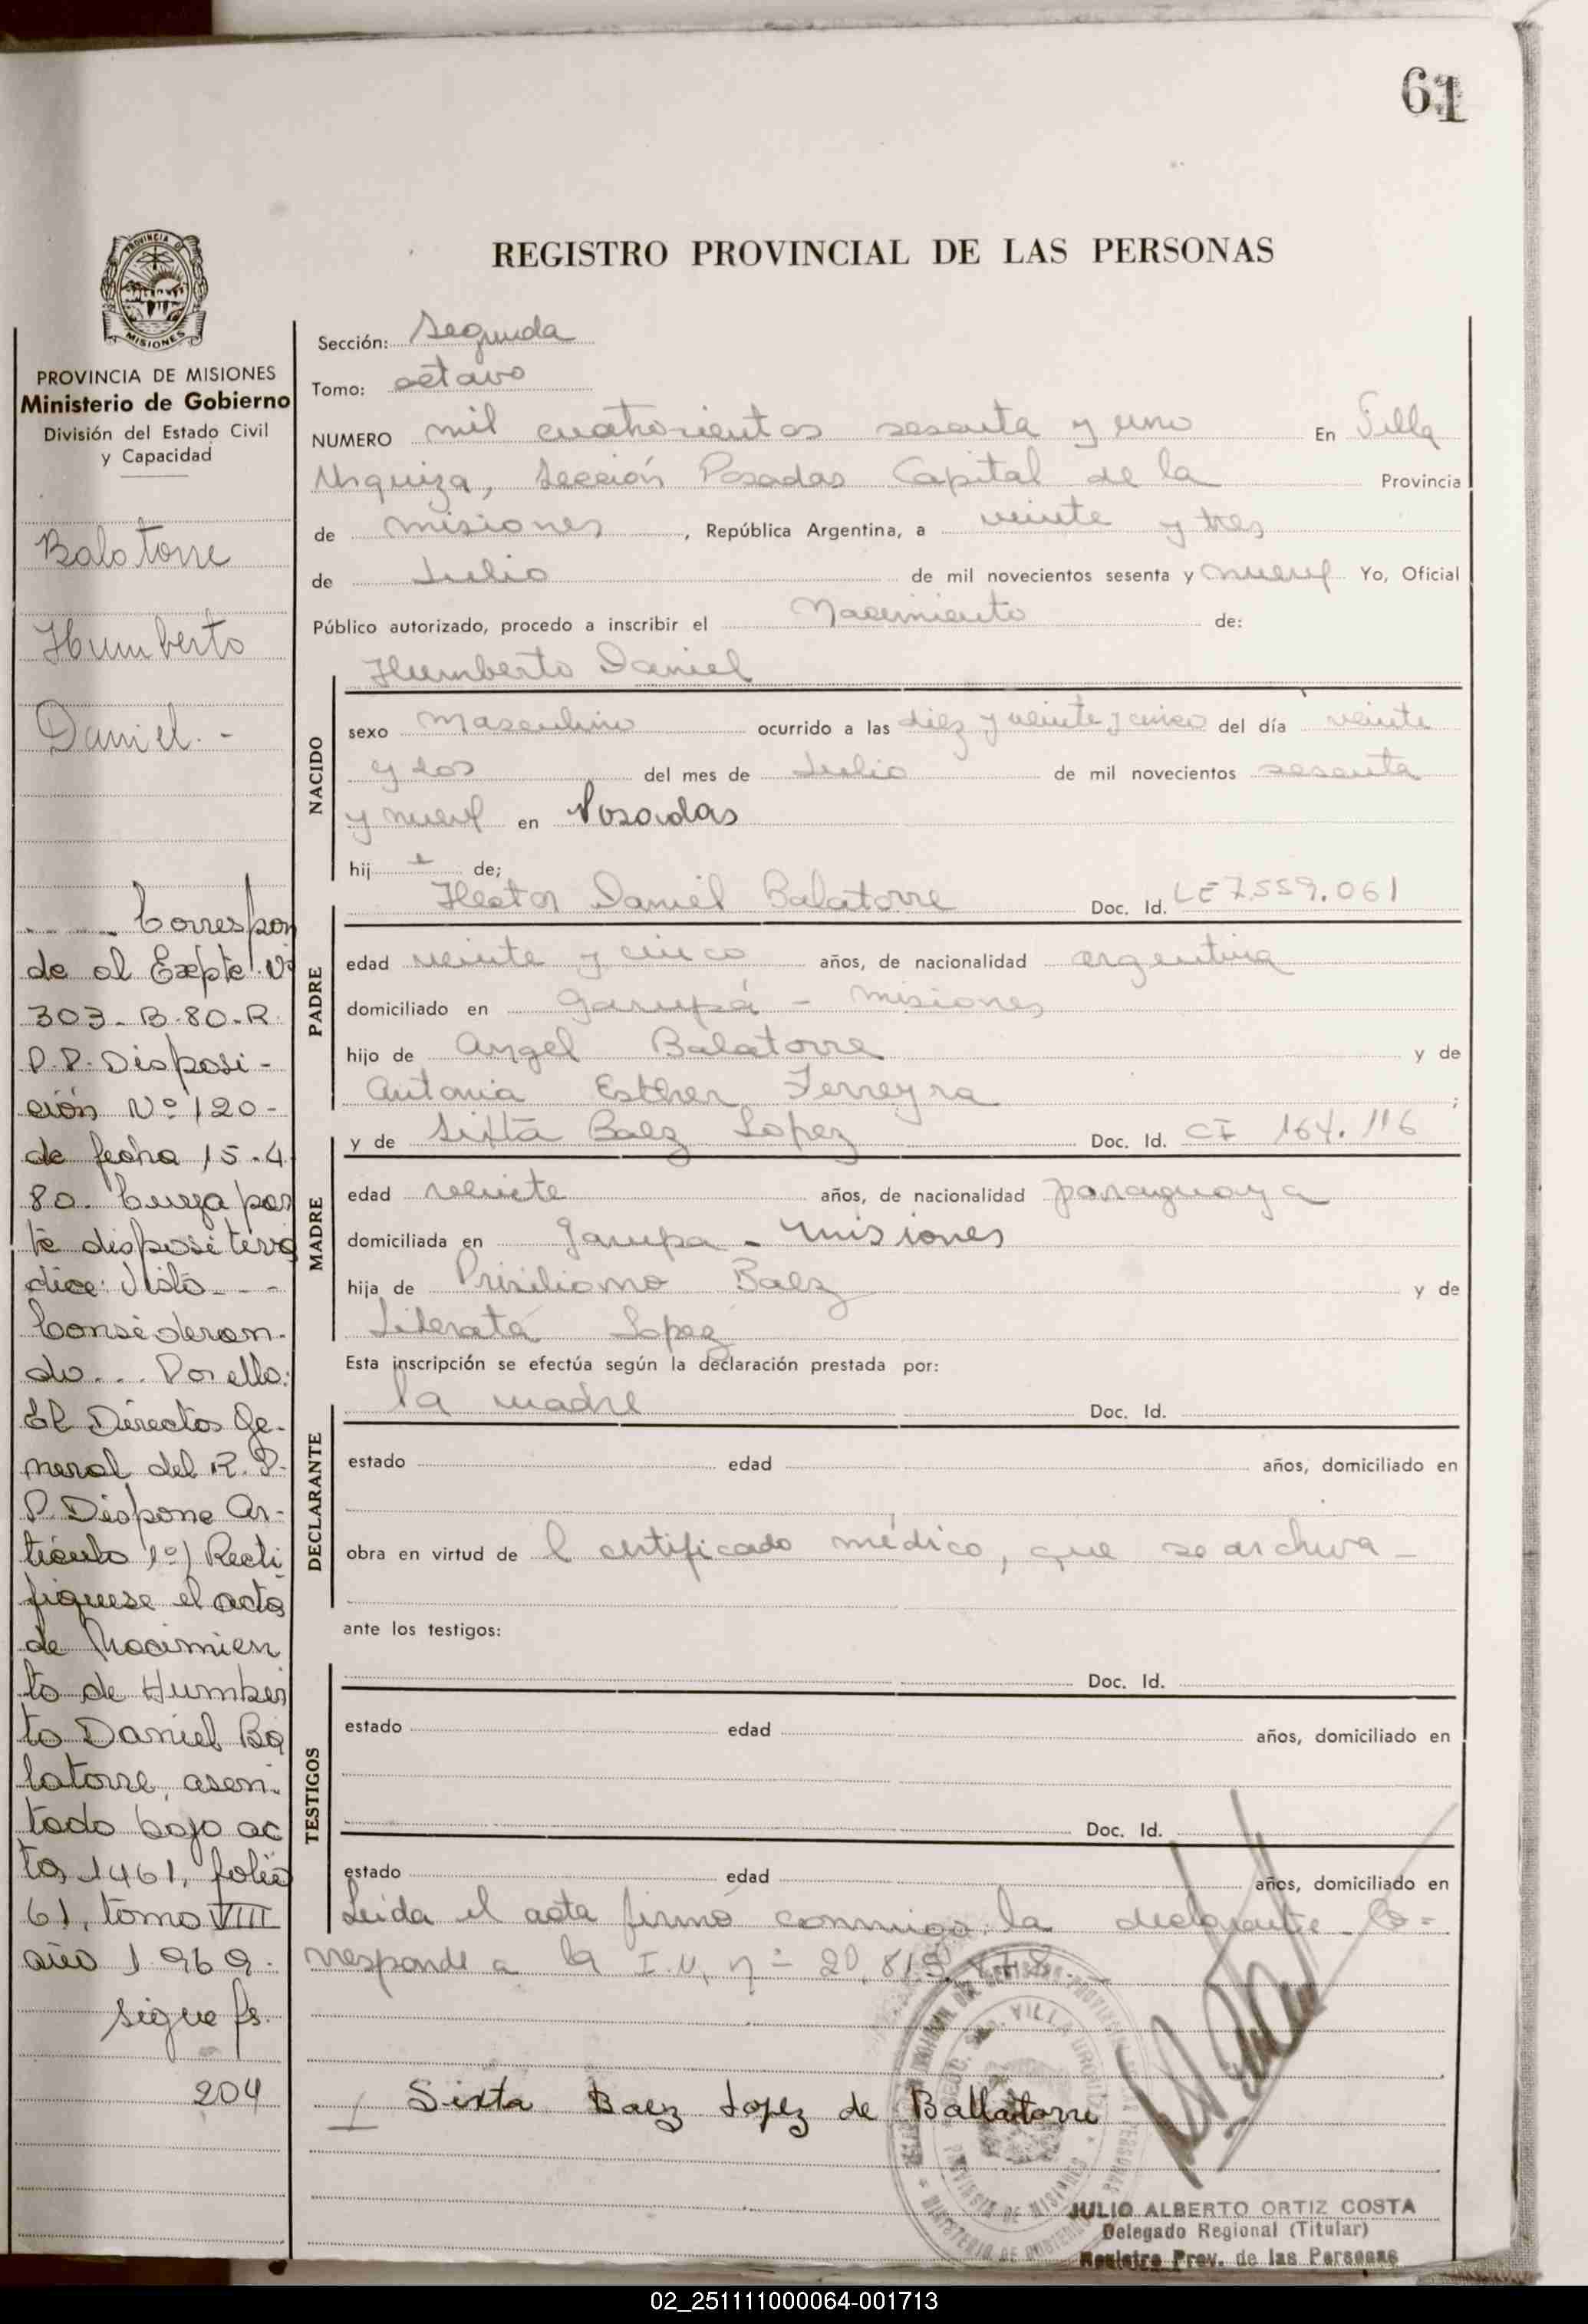 61
REGISTRO PROVINCIAL DE LAS PERSONAS
PROVINCIA DE MISIONES
PROVINCIA DE MISIONES
Ministerio de Gobierno
División del Estado Civil
y Capacidad
Balatorre
Humberto
Daniel.-
Correspon
de al Expte. Nº
303-B-80-R.
P.P. Disposi-
ción Nº 120-
de fecha 15.4
80. Cuya par
te dispositiva
dice: Visto - - -
Consideran-
do... Por ello:
El Director Ge-
neral del R.P.
P. Dispone Ar-
tículo 1º) Recti
fíquese el acta
de Nacimien
to de Humber
to Daniel Ba
latorre, asen-
tado bajo ac
ta 1461, folio
61, tomo VIII
año 1969.
sigue fs.
204
Sección: Segunda
Tomo: octavo
NUMERO mil cuatrocientos sesenta y uno En Villa
Urquiza, Sección Posadas Capital de la Provincia
de Misiones, República Argentina, a veinte y tres
de Julio de mil novecientos sesenta y nueve Yo, Oficial
Público autorizado, procedo a inscribir el Nacimiento de:
Humberto Daniel
NACIDO
sexo masculino ocurrido a las diez y veinte y cinco del día veinte
y dos del mes de Julio de mil novecientos sesenta
y nueve en Posadas
hij o de;
Hector Daniel Balatorre Doc. Id. LE 7.559.061
PADRE
edad veinte y cinco años, de nacionalidad argentina
domiciliado en Garupá - Misiones
hijo de Angel Balatorre y de
Antonia Esther Ferreyra ;
y de Sixta Baez Lopez Doc. Id. CI 164.116
MADRE
edad veinte años, de nacionalidad paraguaya
domiciliada en Garupa - Misiones
hija de Prisiliano Baez y de
Liberata Lopez
Esta inscripción se efectúa según la declaración prestada por:
la madre Doc. Id.
DECLARANTE
estado edad años, domiciliado en
obra en virtud de l certificado médico, que se archiva -
ante los testigos:
Doc. Id.
TESTIGOS
estado edad años, domiciliado en
Doc. Id.
estado edad años, domiciliado en
Leida el acta firmó conmigo la declarante. Co=
rresponde a la I.U. nº 20.819.
Sixta Baez Lopez de Ballatorre
VILLA URQUIZA
PROVINCIA DE MISIONES
JULIO ALBERTO ORTIZ COSTA
Delegado Regional (Titular)
Registro Prov. de las Personas
02_251111000064-001713